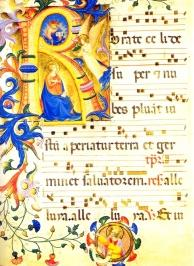 Rorate ce li de
su per et nu
bes pluāt iu
stū aperiatur terra et ger
minet saluatorem. alle
luya. alle lu ya.